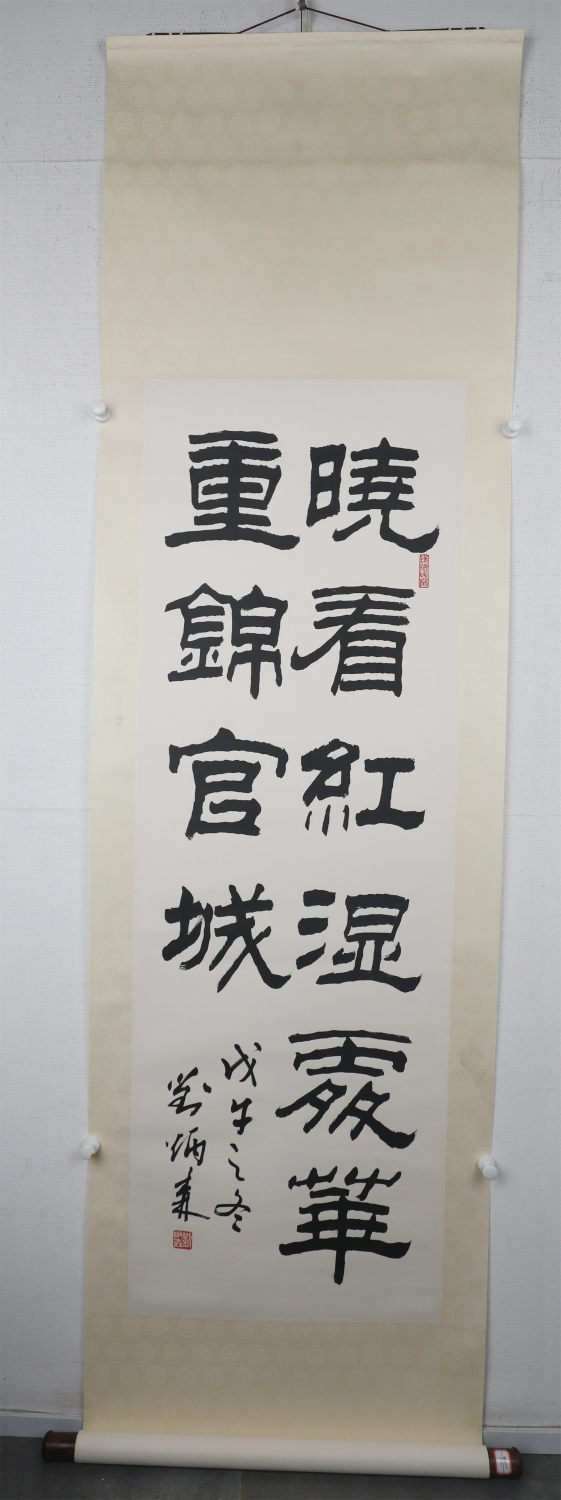 曉看紅湿處華
重錦官城
戊午之冬
劉炳森